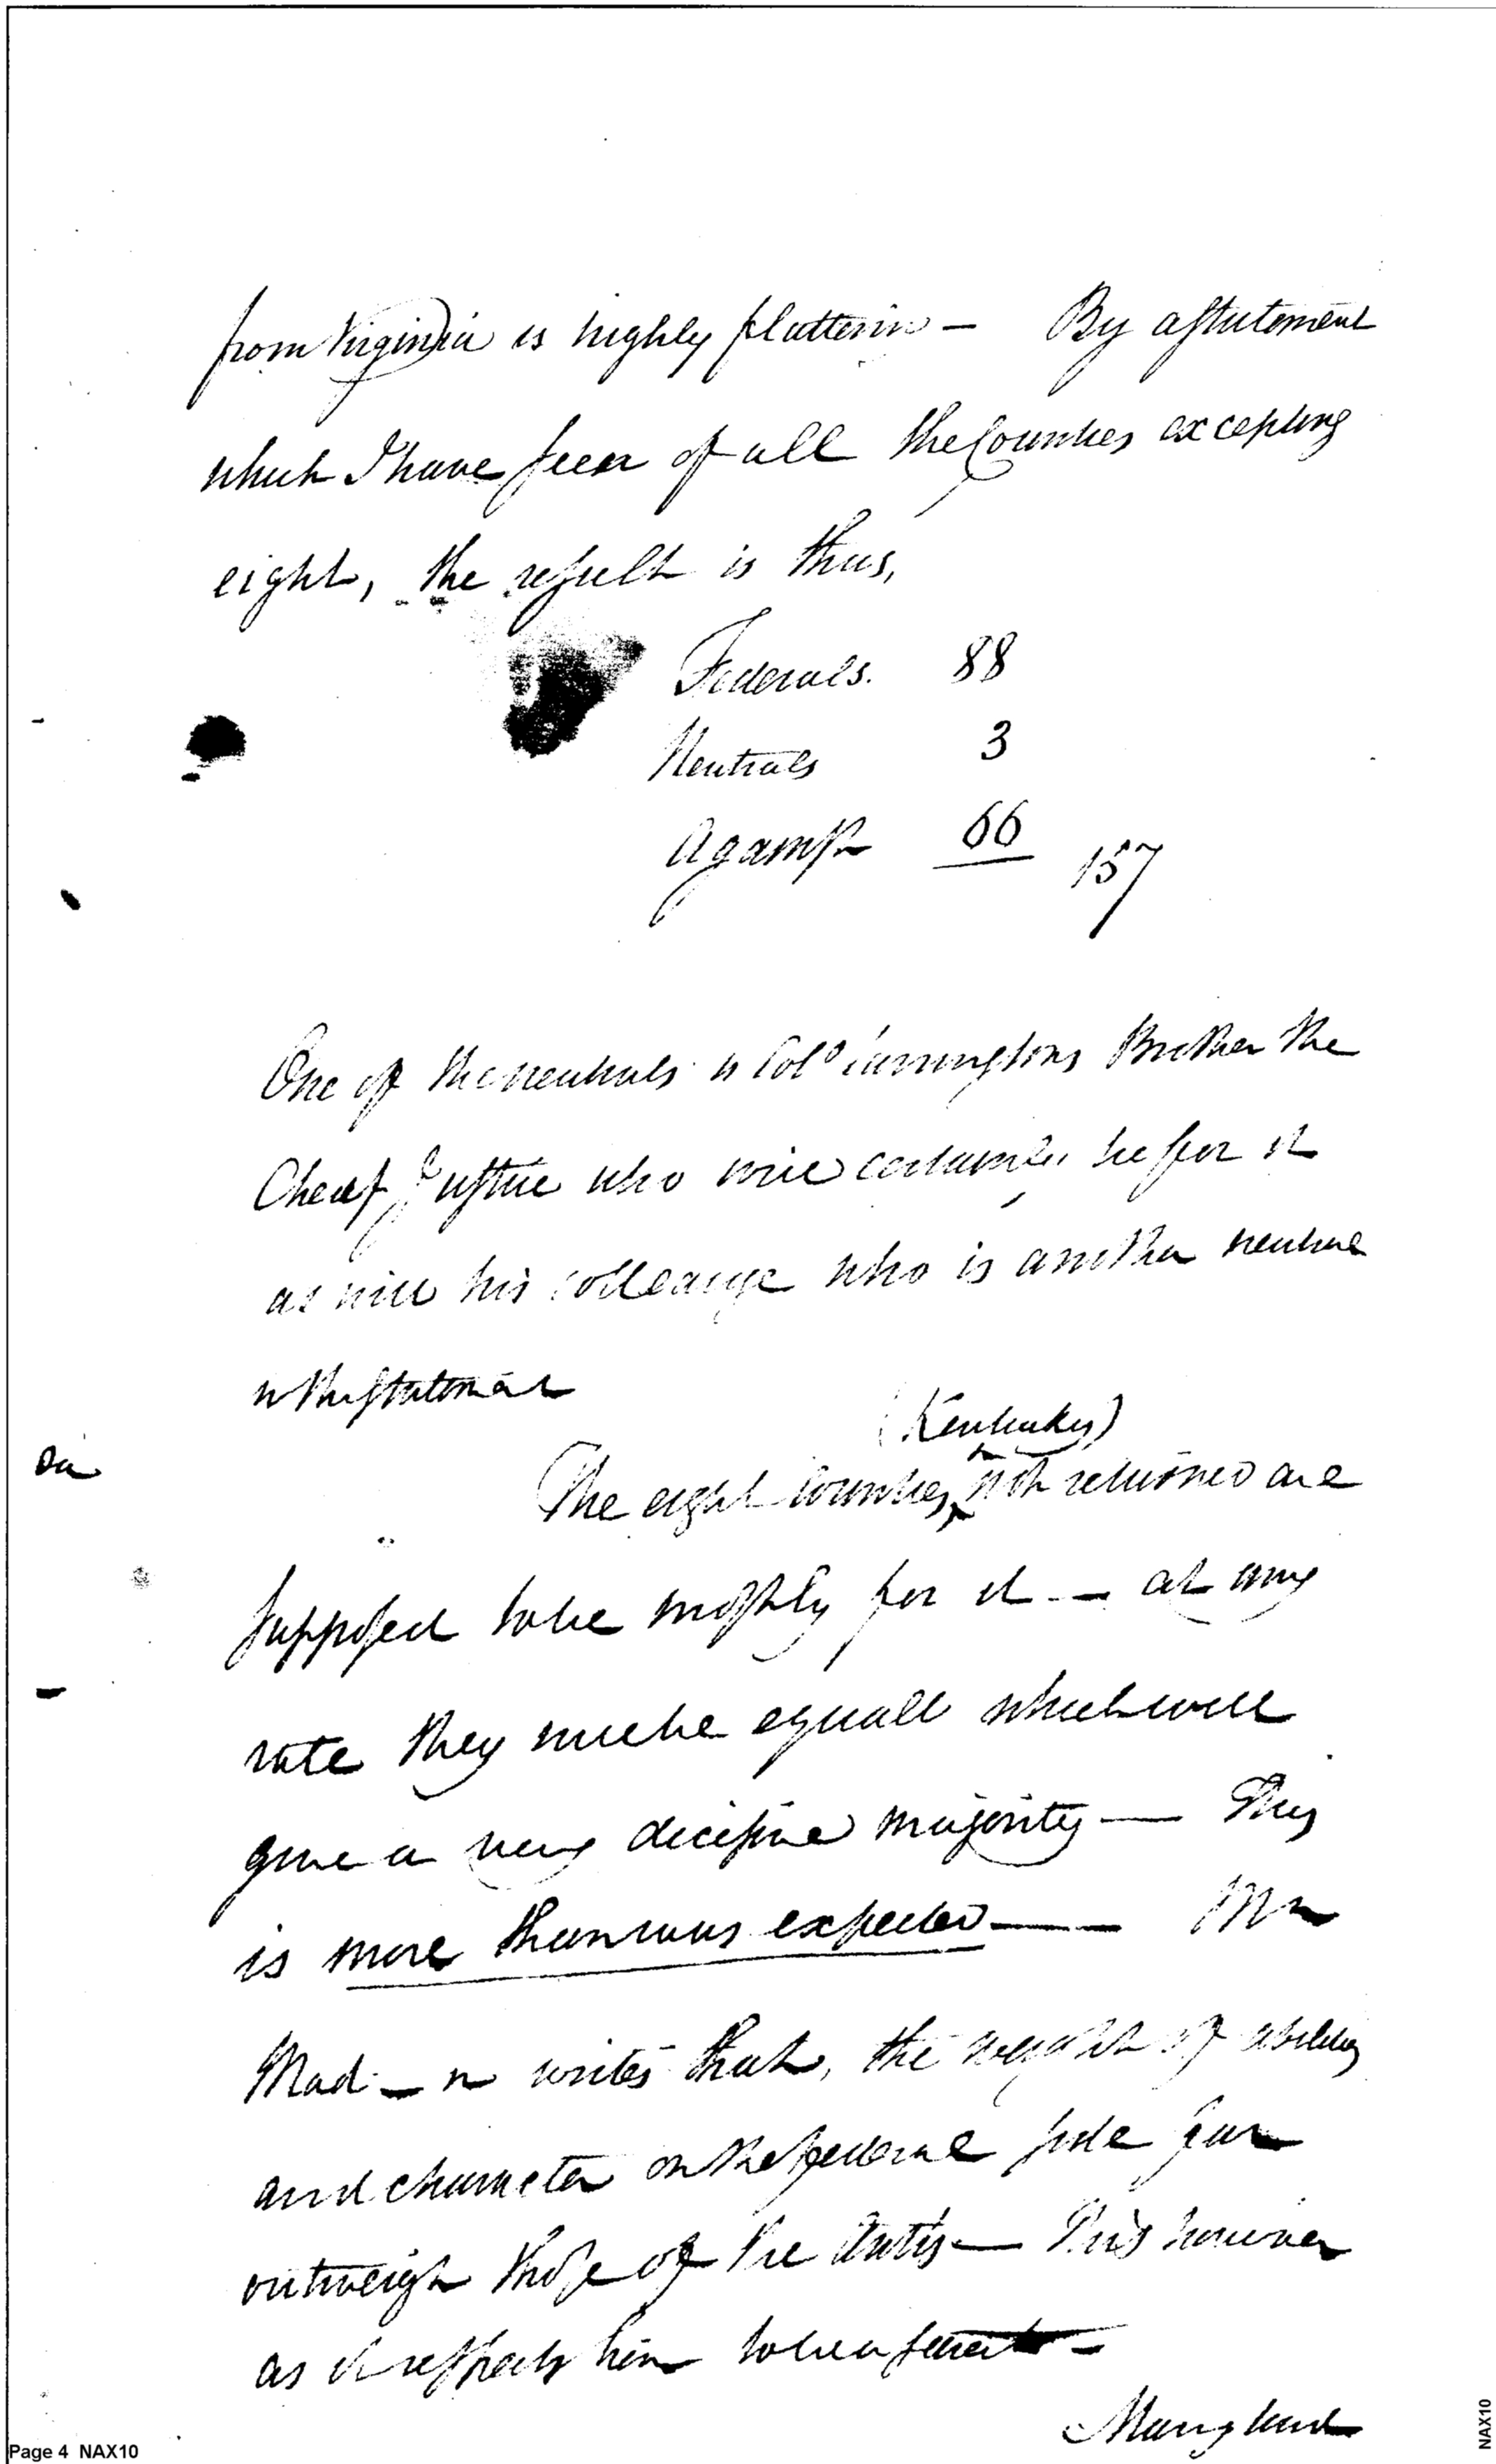 from Virginia is highly flattering — By a statement
which I have seen of all the Counties excepting
eight, the result is thus,
Federals. 88
Neutrals 3
against 66
157
One of the neutrals is Colo Carringtons Brother the
Cheif Justice who will certainly be for it
as will his colleauge who is another neutral
in the statement
(Kentucky)
The eight counties, not returned are
supposed to be mostly for it — at any
rate they will be equall which will
give a very decisive majority — This
is more than was expected — Mr
Mad—n writes that, the weight of abilities
and character on the federal side far
outweigh those of the Antis — This however
as it respects him to be a secret —
Maryland
Page 4 NAX10
NAX10